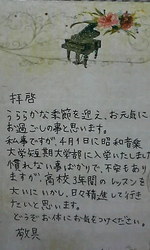 拝啓
うららかな季節を迎え、お元気に
お過ごしの事と思います。
私事ですが、4月1日に昭和音楽
大学短期大学部に入学いたしました。
慣れない事ばかりで、不安もあり
ますが、高校3年間のレッスンを
大いにいかし、日々精進して行き
たいと思います。
どうぞお体にお気をつけください。
敬具